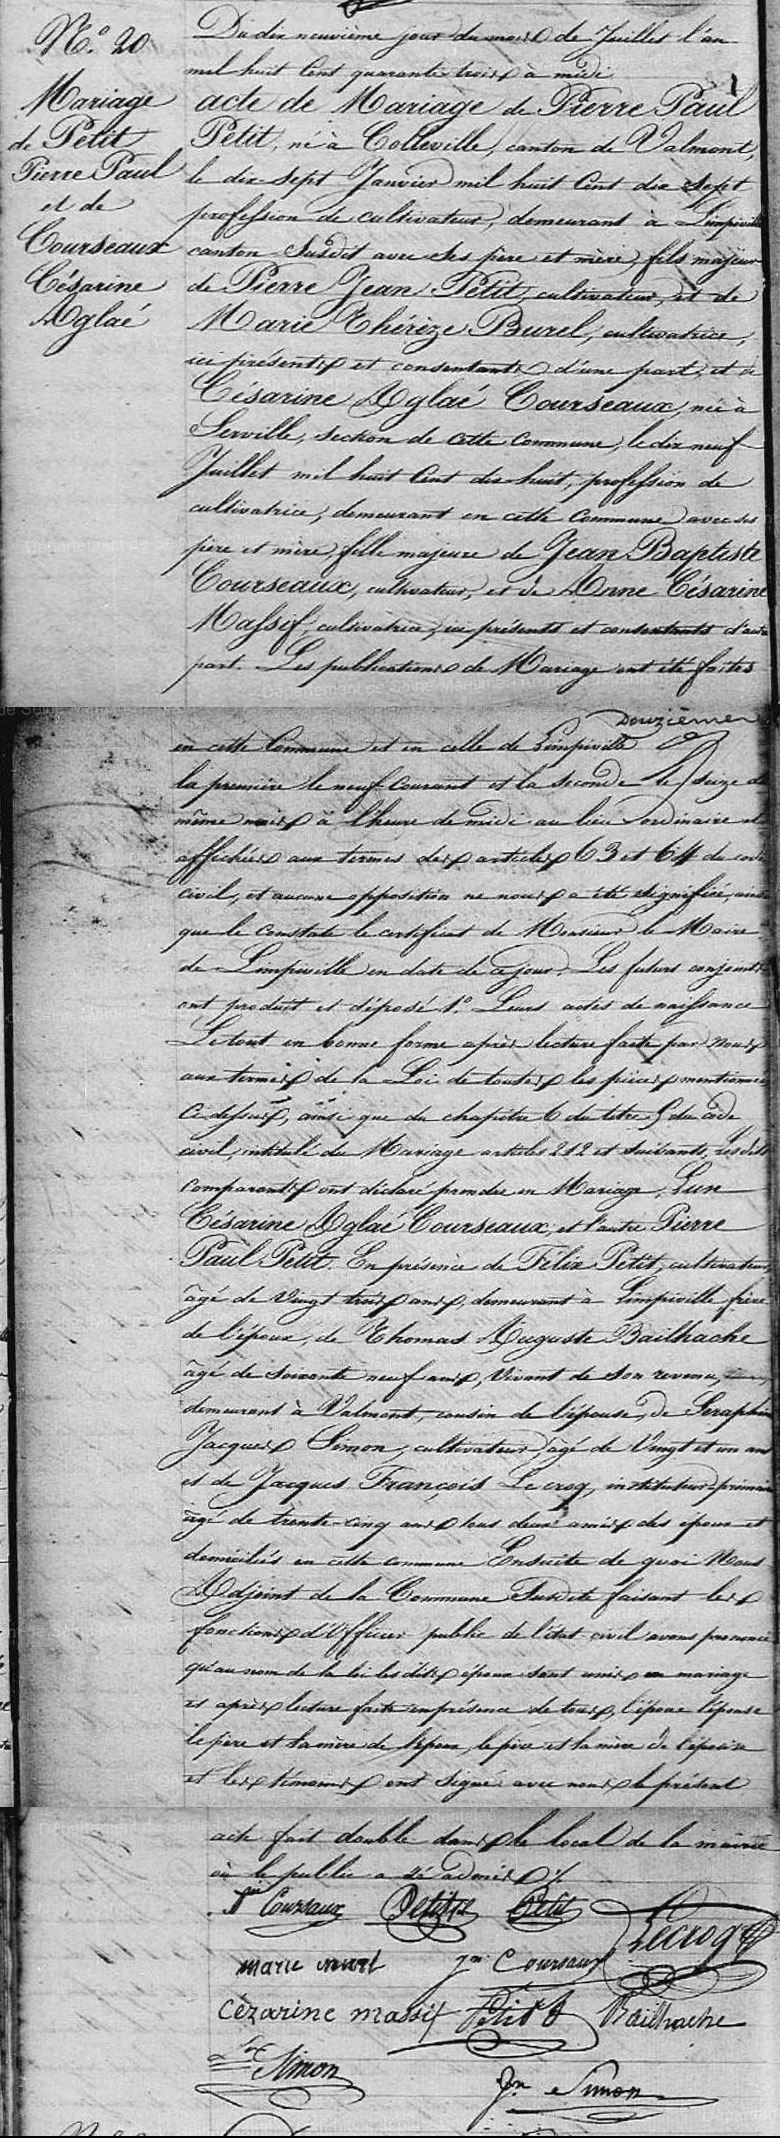 N.° 20
Mariage
de Petit
Pierre Paul
et de
Courseaux
Césarine
Aglaé
Du dix neuvième jour du mois de Juillet l'an
mil huit Cent quarante trois à midi
acte de Mariage de Pierre Paul
Petit, né à Colleville, canton de Valmont,
le dix-sept Janvier mil huit Cent dix sept
profession de cultivateur, demeurant à Limpiville
canton susdit avec ses père et mère, fils majeur
de Pierre Jean Petit, cultivateur, et de
Marie Thérèze Burel, cultivatrice,
ici présents et consentants d'une part, et de
Césarine Aglaé Courseaux, née à
Serville, section de cette Commune, le dix neuf
Juillet mil huit Cent dix-huit, profession de
cultivatrice, demeurant en cette Commune avec ses
père et mère, fille majeure de Jean Baptiste
Courseaux, cultivateur, et de Anne Césarine
Massif, cultivatrice, ici présents et consentants d'autre
part. Les publications de Mariage ont été faites
Douzième
en cette Commune et en celle de Limpiville
la première le neuf courant et la seconde le seize du
même mois à l'heure de midi au lieu ordinaire et
affichées aux termes des articles 63 et 64 du code
civil, et aucune opposition ne nous a été signifiée, ainsi
que le constate le certificat de Monsieur le Maire
de Limpiville en date de ce jour. Les futurs conjoints
ont produit et déposé 1.° Leurs actes de naissance
Le tout en bonne forme après lecture faite par Nous
aux termes de la Loi de toutes les pièces mentionnées
Ci dessus, ainsi que du chapitre 6 du titre 5 du code
civil, intitulé du Mariage articles 212 et suivants, Lesdits
comparants ont déclaré prendre en Mariage, L'un
Césarine Aglaé Courseaux, et l'autre Pierre
Paul Petit. En présence de Félix Petit, cultivateur,
âgé de Vingt trois ans, demeurant à Limpiville frère
de l'époux, de Thomas Auguste Bailhache
âgé de soixante neuf ans, Vivant de son revenu,
demeurant à Valmont, cousin de l'épouse, de Seraphin
Jacques Simon, cultivateur, âgé de Vingt et un ans
et de Jacques François Lecroq, instituteur primaire
âgé de trente-cinq ans tous deux amis des époux et
domiciliés en cette commune Ensuite de quoi Nous
Adjoint de la Commune Susdite faisant les
fonctions d'Officier public de l'état civil avons prononcé
qu'au nom de la loi lesdits époux sont unis en mariage
et après lecture faite en présence de tous, l'époux l'épouse
le père et la mère de l'époux, le père et la mère de l'épouse
et les témoins ont signé avec nous le présent
acte fait double dans le local de la mairie
où le public a été admis
Coursaux Petit Petit Lecroq
marie Coursaux
Cézarine massif Petit Bailhache
Simon
Simon